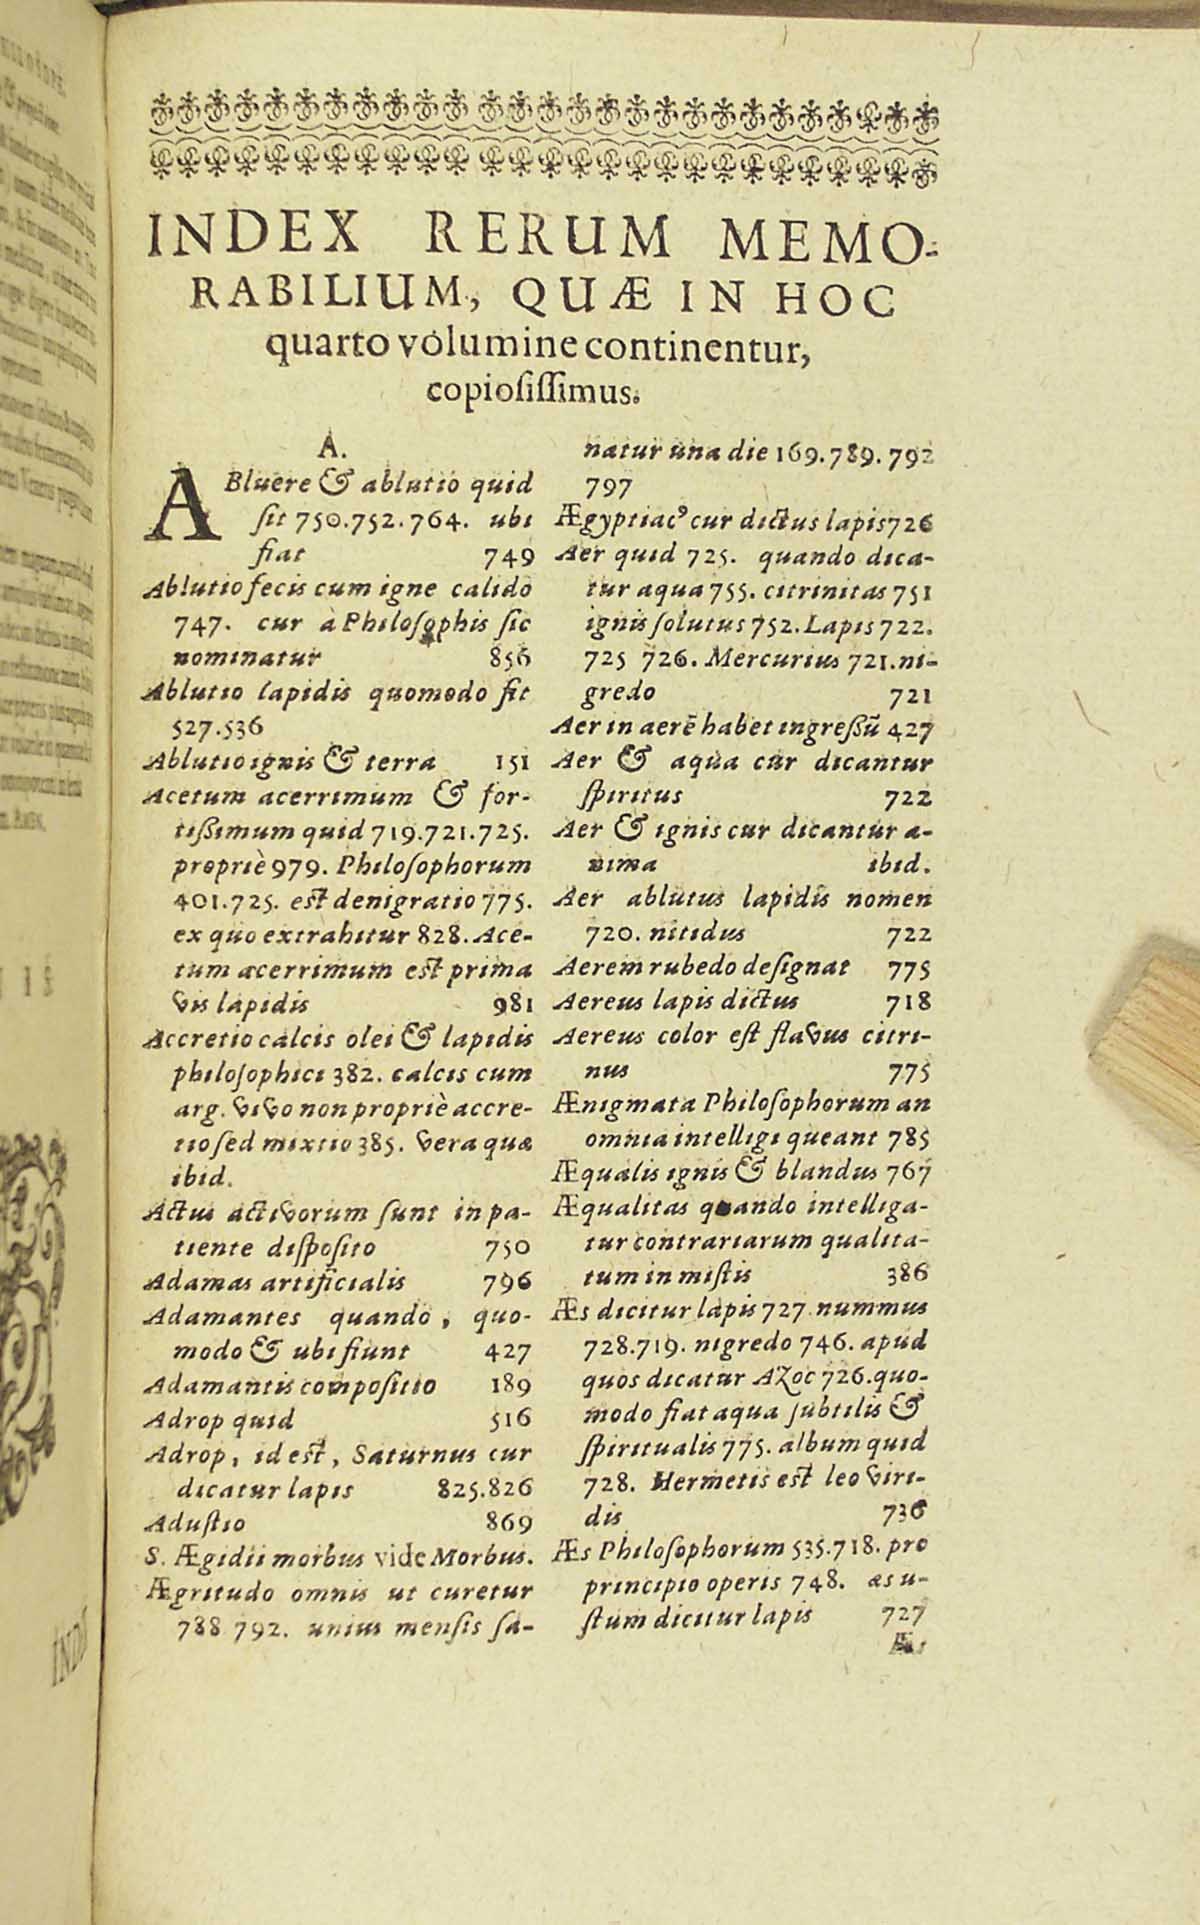 INDEX RERUM MEMO-
RABILIUM, QUÆ IN HOC
quarto volumine continentur,
copiosissimus.
A.
ABluere & ablutio quid
sit 750.752.764. ubi
fiat 749
Ablutio fecis cum igne calido
747. cur à Philosophis sic
nominatur 856
Ablutio lapidis quomodo fit
527.536
Ablutio ignis & terra 151
Acetum acerrimum & for-
tißimum quid 719.721.725.
propriè 979. Philosophorum
401.725. est denigratio 775.
ex quo extrahitur 828. Ace-
tum acerrimum est prima
vis lapidis 981
Accretio calcis olei & lapidis
philosophici 382. calcis cum
arg. vivo non propriè accre-
tio sed mixtio 385. vera quæ
ibid.
Actus activorum sunt in pa-
tiente disposito 750
Adamas artificialis 796
Adamantes quando, quo-
modo & ubi fiunt 427
Adamantis compositio 189
Adrop quid 516
Adrop, id est, Saturnus cur
dicatur lapis 825.826
Adustio 869
S. Ægidii morbus vide Morbus.
Ægritudo omnis ut curetur
788 792. unius mensis sa-
natur una die 169.789.792
797
Ægyptiacꝰ cur dictus lapis 726
Aer quid 725. quando dica-
tur aqua 755. citrinitas 751
ignis solutus 752. Lapis 722.
725 726. Mercurius 721. ni-
gredo 721
Aer in aerē habet ingreßū 427
Aer & aqua cur dicantur
spiritus 722
Aer & ignis cur dicantur a-
nima ibid.
Aer ablutus lapidis nomen
720. nitidus 722
Aerem rubedo designat 775
Aereus lapis dictus 718
Aereus color est flavus citri-
nus 775
Ænigmata Philosophorum an
omnia intelligi queant 785
Æqualis ignis & blandus 767
Æqualitas quando intelliga-
tur contrariarum qualita-
tum in mistis 386
Æs dicitur lapis 727 nummus
728.719. nigredo 746. apud
quos dicatur Azoc 726. quo-
modo fiat aqua subtilis &
spiritualis 775. album quid
728. Hermetis est leo viri-
dis 736
Æs Philosophorum 535.718. pro
principio operis 748. æs u-
stum dicitur lapis 727
Æs